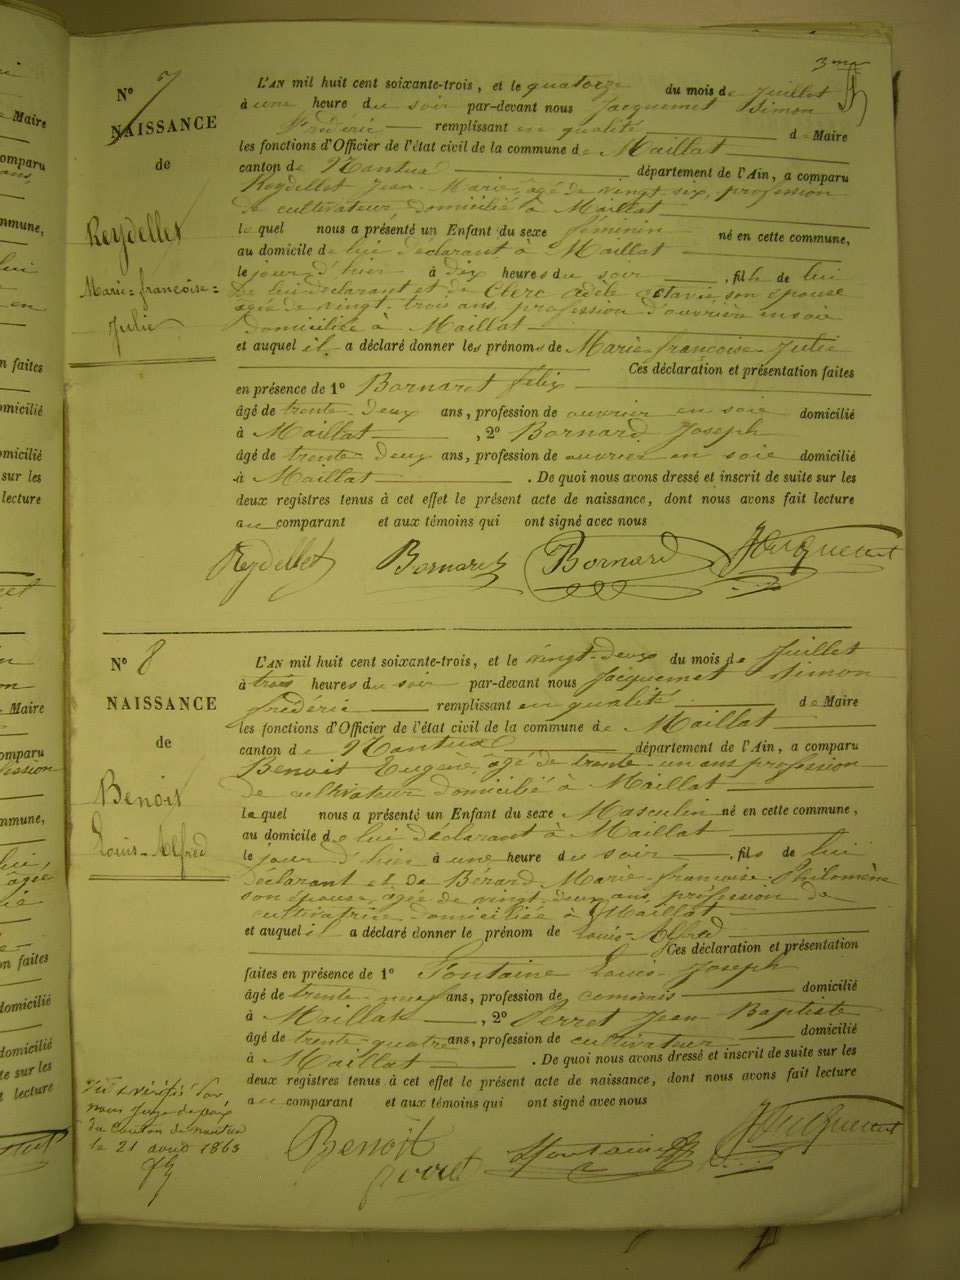 3me
N° 7
NAISSANCE
de
Reydellet
Marie=françoise=
Julie
L'AN mil huit cent soixante-trois, et le quatorze du mois de Juillet
à une heure du soir par-devant nous Jacquemet Simon
Frédéric remplissant en qualité de Maire
les fonctions d'Officier de l'état civil de la commune de Maillat
canton de Nantua département de l'Ain, a comparu
Reydellet Jean-Marie, âgé de vingt-six, profession
de cultivateur, domicilié à Maillat
lequel nous a présenté un Enfant du sexe féminin né en cette commune,
au domicile de lui déclarant à Maillat
le jour d'hier à dix heures du soir, fille de lui
de lui déclarant et de Clerc Adèle Octavie, son épouse
âgée de vingt-trois ans, profession d'ouvrière en soie
domiciliée à Maillat
et auquel il a déclaré donner les prénoms de Marie-françoise-Julie
Ces déclaration et présentation faites
en présence de 1° Bornaret félix
âgé de trente-deux ans, profession de ouvrier en soie domicilié
à Maillat, 2° Bornard Joseph
âgé de trente-deux ans, profession de ouvrier en soie domicilié
à Maillat. De quoi nous avons dressé et inscrit de suite sur les
deux registres tenus à cet effet le présent acte de naissance, dont nous avons fait lecture
au comparant et aux témoins qui ont signé avec nous
Reydellet Bornaret Bornard Jacquemet
N° 8
NAISSANCE
de
Benoit
Louis-Alfred
L'AN mil huit cent soixante-trois, et le vingt-deux du mois de Juillet
à trois heures du soir par-devant nous Jacquemet Simon
frédéric remplissant en qualité de Maire
les fonctions d'Officier de l'état civil de la commune de Maillat
canton de Nantua département de l'Ain, a comparu
Benoit Eugène, âgé de trente-un ans profession
de cultivateur domicilié à Maillat
lequel nous a présenté un Enfant du sexe Masculin né en cette commune,
au domicile de lui déclarant à Maillat
le jour d'hier à une heure du soir, fils de lui
déclarant et de Bérard Marie-françoise-Philomène
son épouse, âgée de vingt-deux ans, profession de
cultivatrice domiciliée à Maillat
et auquel il a déclaré donner le prénom de Louis-Alfred
Ces déclaration et présentation
faites en présence de 1° Fontaine Louis-Joseph
âgé de trente-neuf ans, profession de commis domicilié
à Maillat, 2° Perret Jean-Baptiste
âgé de trente-quatre ans, profession de cultivateur domicilié
à Maillat. De quoi nous avons dressé et inscrit de suite sur les
deux registres tenus à cet effet le présent acte de naissance, dont nous avons fait lecture
au comparant et aux témoins qui ont signé avec nous
Vu & vérifié par
nous Juge de paix
du Canton de nantua
le 21 août 1863
Benoit perret Lfontaine Jacquemet